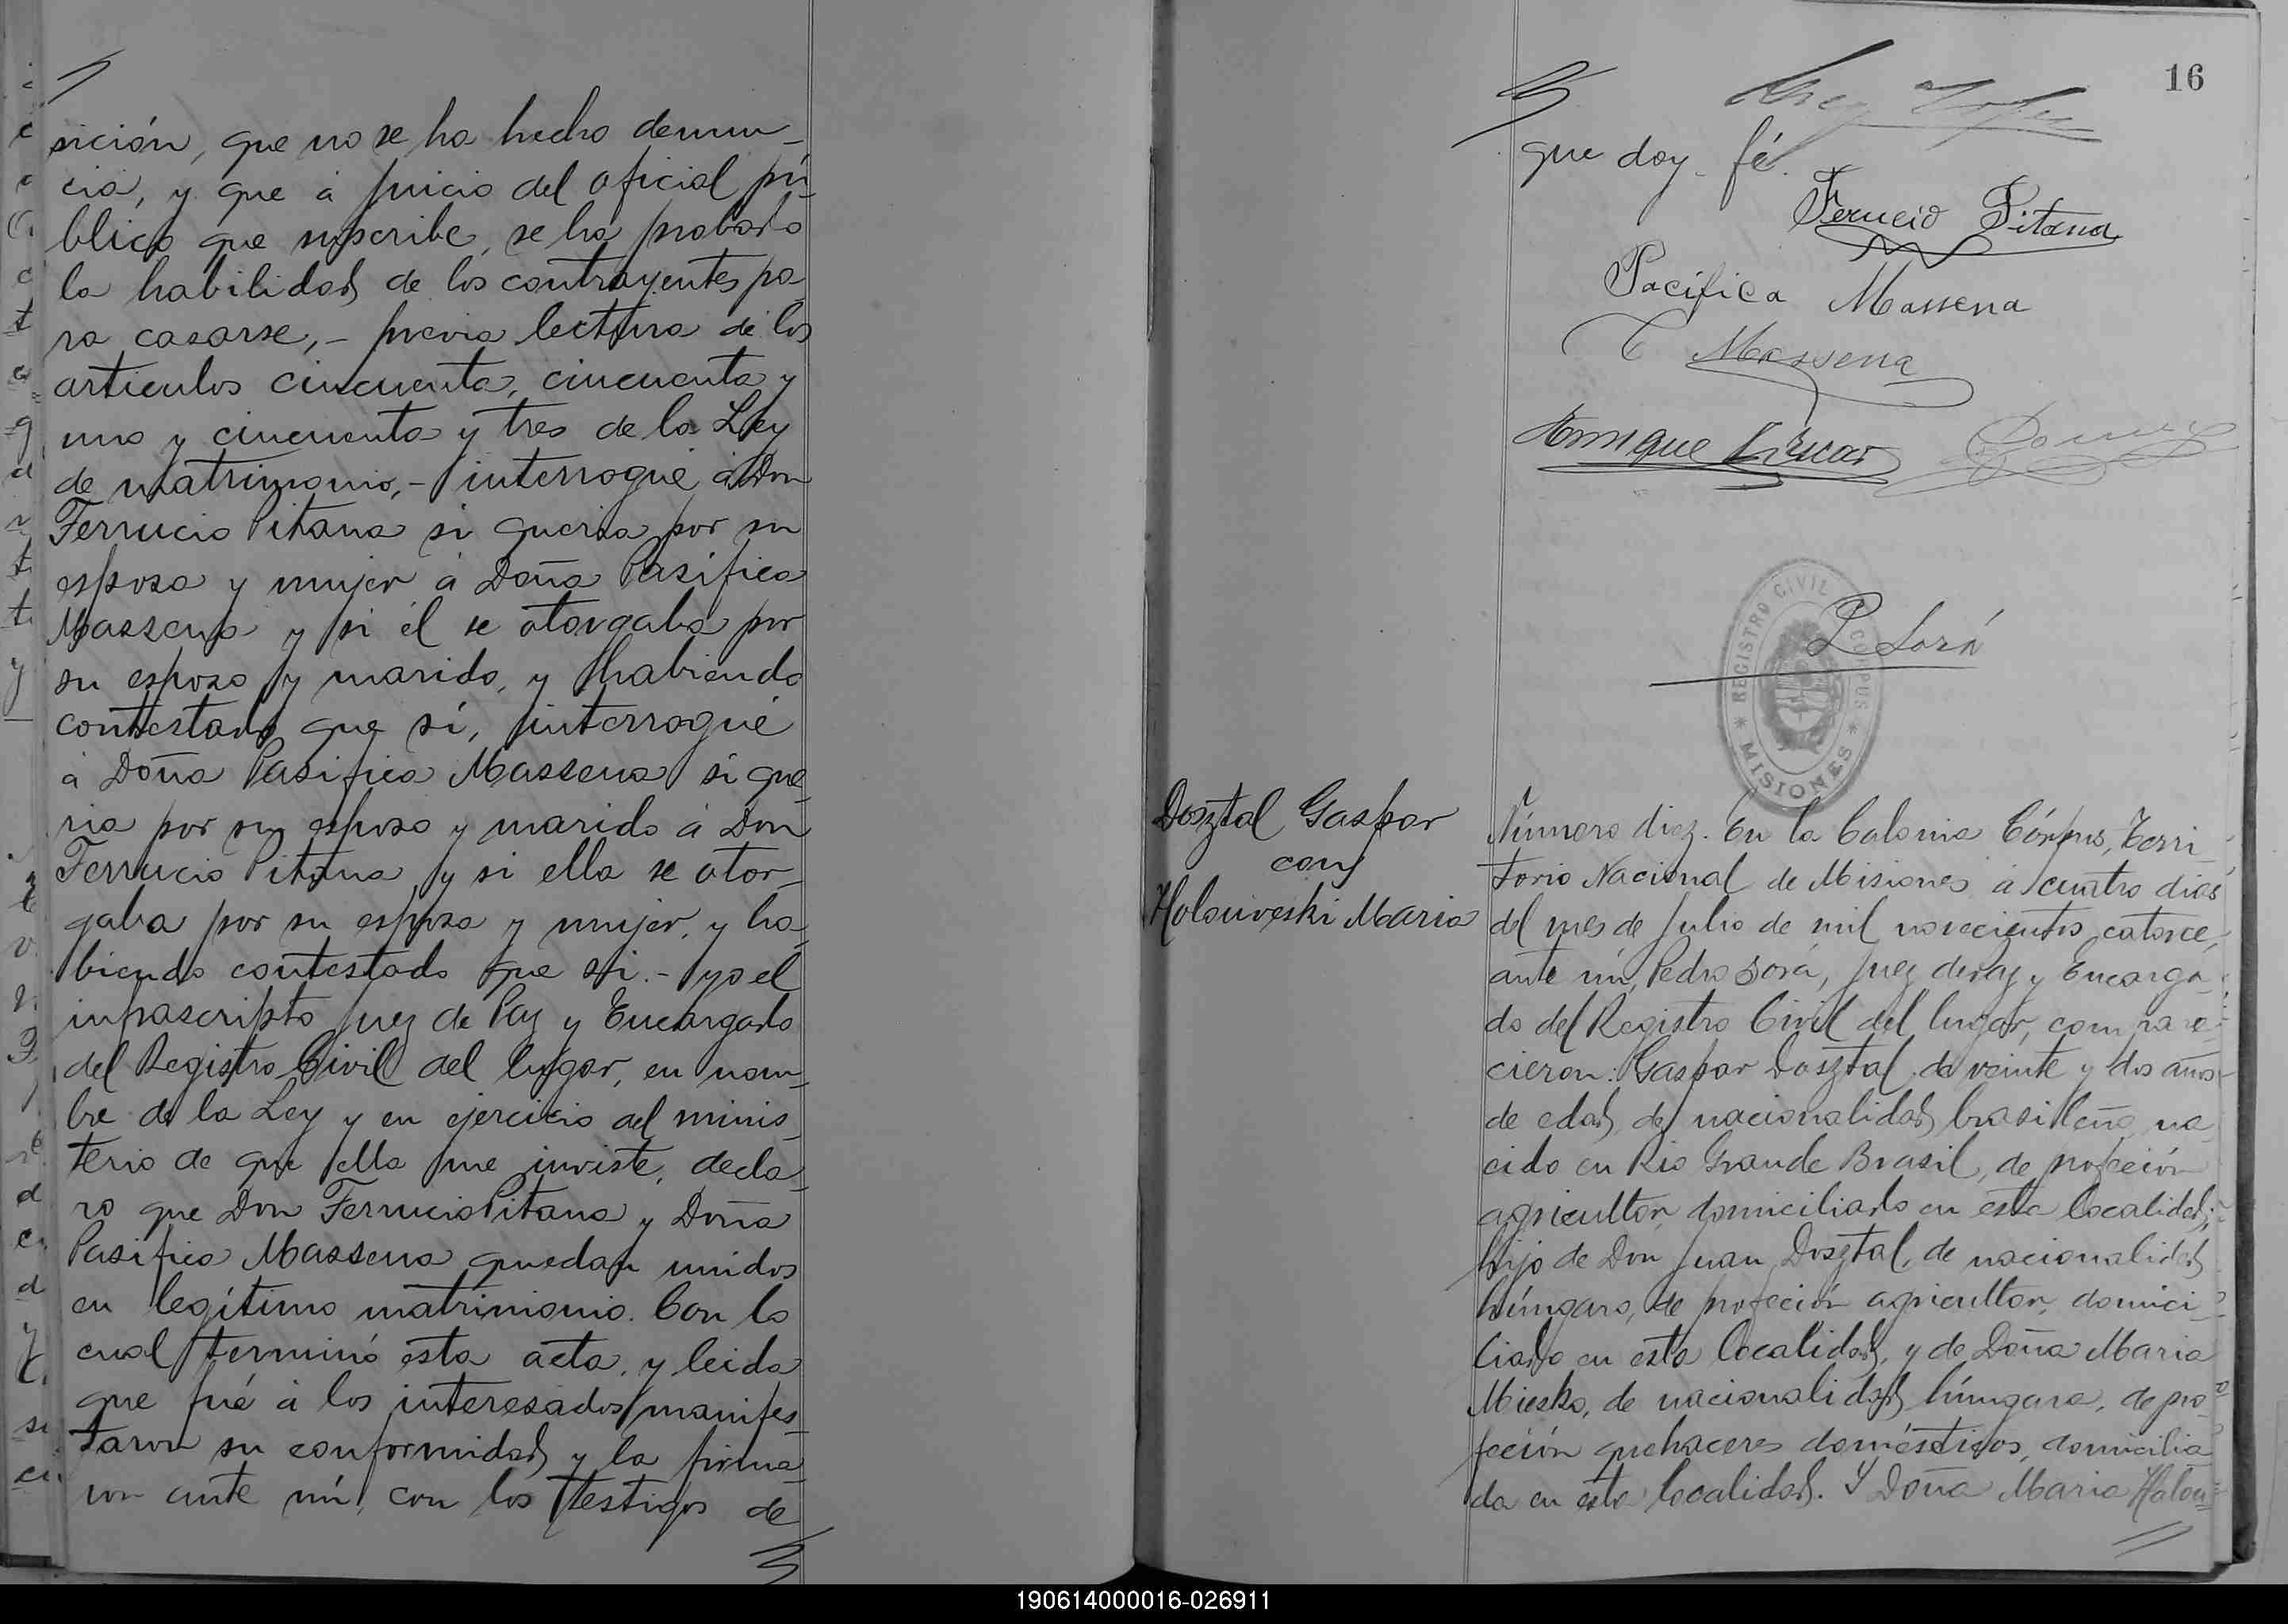 sición, que no se ha hecho denun-
cia, y que á juicio del oficial pú-
blico que suscribe, se ha probado
la habilidad de los contrayentes pa-
ra casarse,- previa lectura de los
articulos cincuenta, cincuenta y
uno y cincuenta y tres de la Ley
de matrimonio,- interrogué á Don
Ferrucio Pitana si queria por su
esposa y mujer á Doña Pasífica
Massena y si él se otorgaba por
su esposo y marido, y habiendo
contestado que sí, interrogué
á Doña Pasifica Massena si que-
ria por su esposo y marido á Don
Ferrucio Pitana y si ella se otor-
gaba por su esposa y mujer, y ha-
biendo contestado que si.- yo el
infrascripto Juez de Paz y Encargado
del Registro Civil del lugar, en nom-
bre de la Ley y en ejercicio del minis-
terio de que ella me inviste, decla-
ro que Don Ferrucio Pitana y Doña
Pasifica Massena quedan unidos
en legítimo matrimonio. Con lo
cual terminó esta acta, y leida
que fué á los interesados manifes-
taron su conformidad y la firma-
ron ante mí, con los testigos de
16
que doy fé.
Ferucio Pitana
Pacífica Massena
Massena
Enrique
P Sorá
REGISTRO CIVIL CORPUS
* MISIONES *
Dosztal Gaspar
con
Holouveski Maria
Número diez. En la Colonia Córpus, Terri-
torio Nacional de Misiones a cuatro dias
del mes de Julio de mil novecientos catorce,
ante mí, Pedro Sorá, Juez de Paz y Encarga-
do del Registro Civil del lugar, compare-
cieron: Gaspar Dosztal, de veinte y dos años
de edad, de nacionalidad brasileña, na-
cido en Rio Grande Brasil, de profeción
agricultor, domiciliado en esta localidad,
hijo de Don Juan Dosztal, de nacionalidad
húngaro, de profeción agricultor, domici-
liado en esta localidad, y de Doña Maria
Miesko, de nacionalidad húngara, de pro-
feción quehaceres domésticos, domicilia-
da en esta localidad. Y Doña Maria Holou-
190614000016-026911